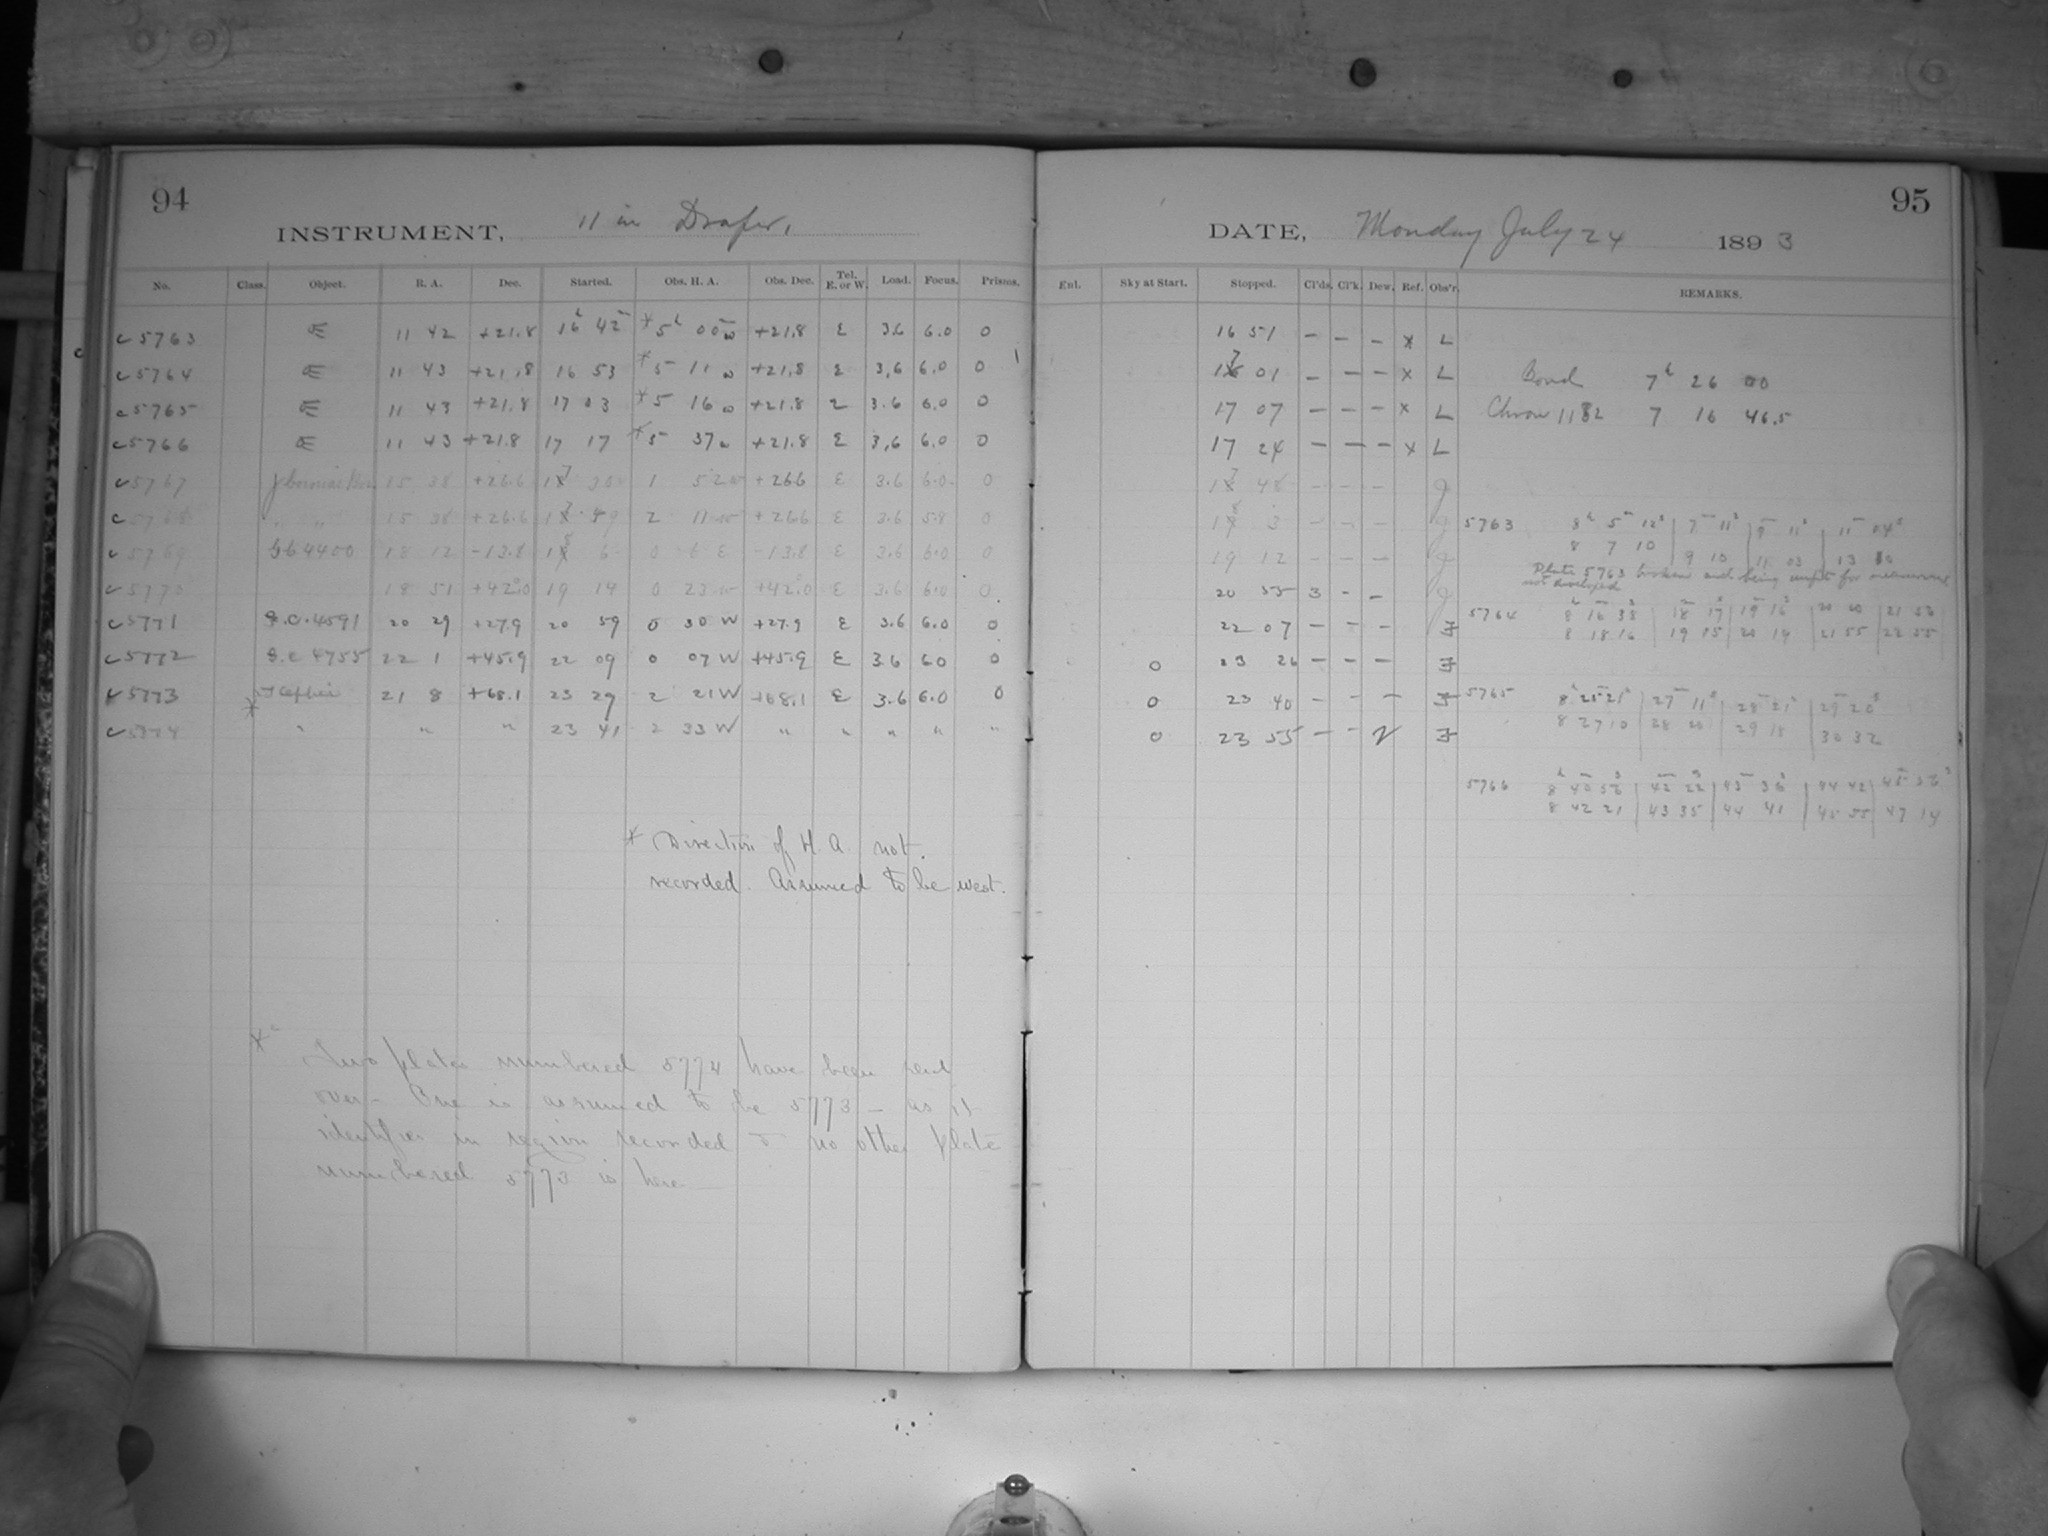 94
INSTRUMENT, 11 in Draper,
No. Class. Object. R. A. Dec. Started. Obs. H. A. Obs. Dec. Tel. E. or W. Load. Focus. Prisms.
c 5763 Œ 11 42 +21.8 16h 42m *5h 00m w +21.8 E 3.6 6.0 0
c 5764 Œ 11 43 +21.8 16 53 *5 11 w +21.8 E 3.6 6.0 0
c 5765 Œ 11 43 +21.8 17 03 *5 16 w +21.8 E 3.6 6.0 0
c 5766 Œ 11 43 +21.8 17 17 *5 37 w +21.8 E 3.6 6.0 0
c 5767 15 38 +26.6 17 30 1 52 w +26.6 E 3.6 6.0 0
c 5768 " " 15 38 +26.6 17 49 2 11 w +26.6 E 3.6 5.8 0
c 5769 G.C. 4400 18 12 -13.8 18 6 0 6 E -13.8 E 3.6 6.0 0
c 5770 18 51 +42.0 19 14 0 23 w +42.0 E 3.6 6.0 0
c 5771 G.C. 4591 20 29 +27.9 20 59 0 30 W +27.9 E 3.6 6.0 0
c 5772 G.C 4755 22 1 +45.9 22 09 0 07 W +45.9 E 3.6 6.0 0
c 5773 * T Cephei 21 8 +68.1 23 29 2 21 W +68.1 E 3.6 6.0 0
c 5774 " " " 23 41 2 33 W " " " " "
* Direction of H A not
recorded. Assumed to be west.
* Two plates numbered 5774 have been sent
over - One is assumed to be 5773 - as it
identifies in region recorded & no other plate
numbered 5773 is here -
95
DATE, Monday July 24 1893
Enl. Sky at Start. Stopped. Cl'ds. Cl'k. Dew. Ref. Obs'r. REMARKS.
16 51 - - - x L
17 01 - - - x L Bond 7h 26 00
17 07 - - - x L Chron 1182 7 16 46.5
17 24 - - - x L
17 48 - - - J
18 3 - - - J 5763 8h 5m 12s 7m 11s 9m 11s 11m 04s
19 12 - - - J 8 7 10 9 10 11 03 13
Plate 5763 broken and being unfit for measuring
not developed
20 55 3 - - J 5764 8h 16m 38s 18m 17s 19m 16s 20 20 21 56
22 07 - - - F 8 18 16 19 15 20 19 21 55 22 55
0 23 26 - - - F
0 23 40 - - - F 5765 8h 25m 25s 27m 11s 28m 21s 29m 20s
8 27 10 28 20 29 18 30 32
0 23 55 - - F
5766 8h 40m 56s 42m 22s 43m 36s 44 42 45m 56s
8 42 21 43 35 44 41 45 55 47 14